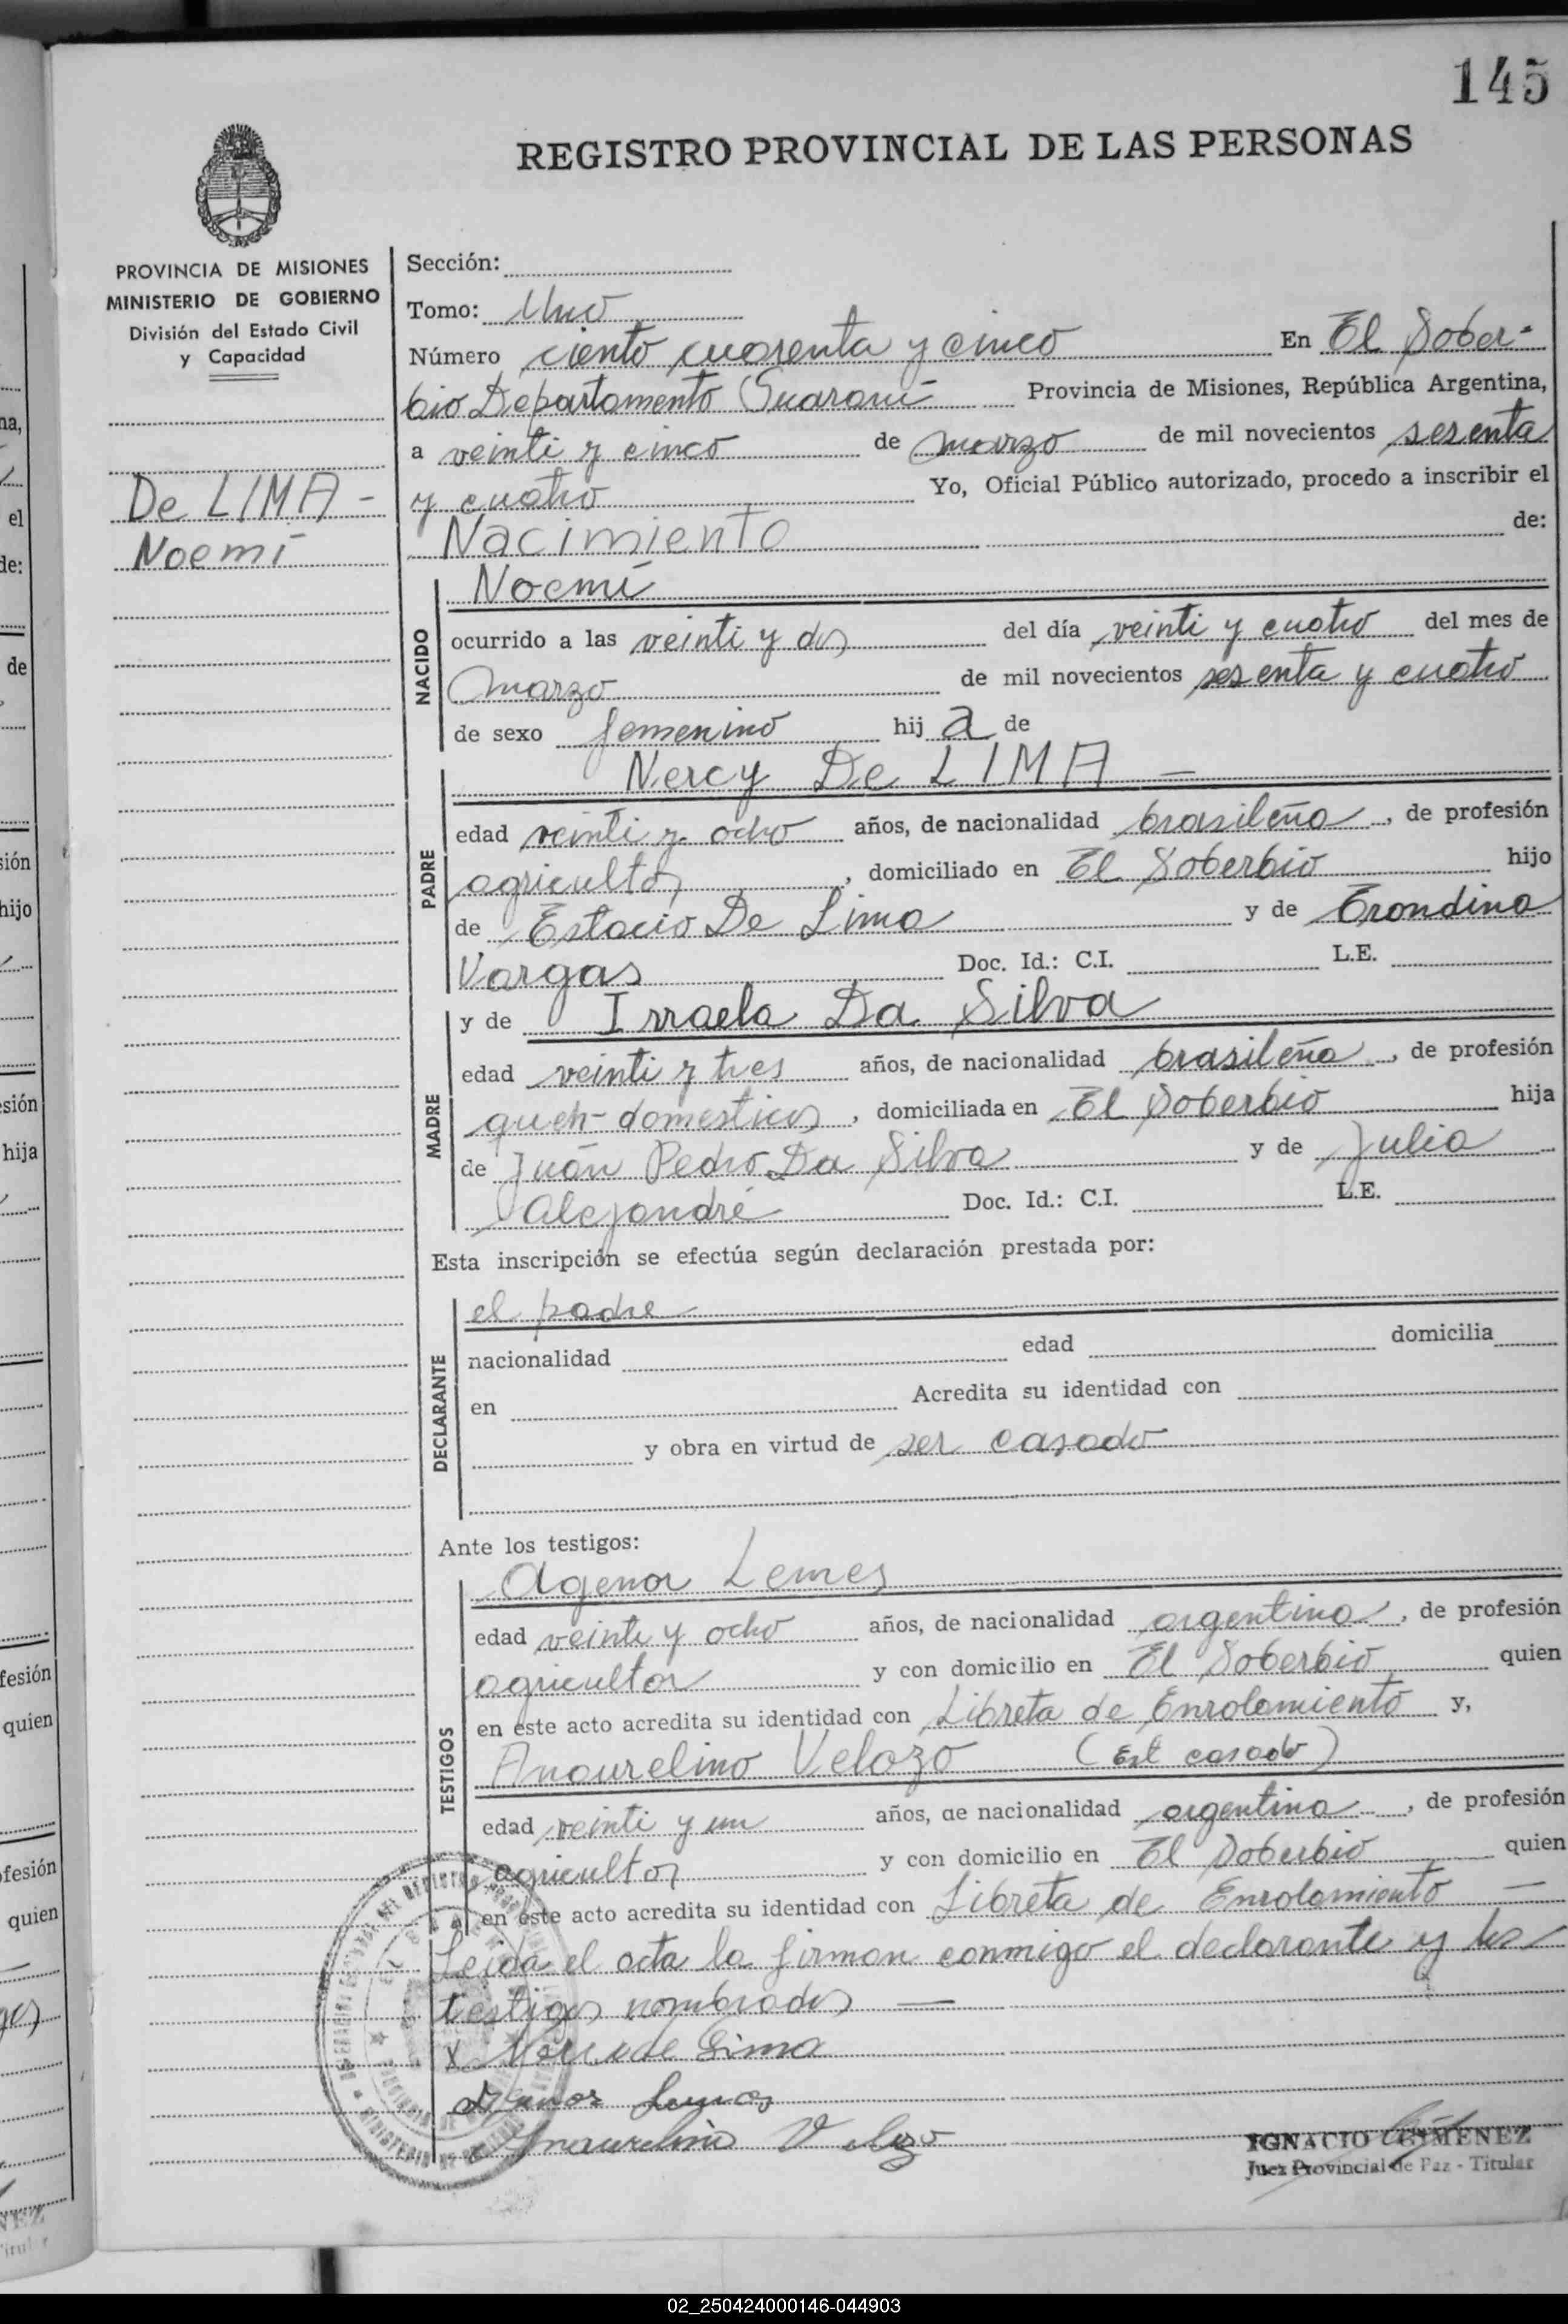 145
REGISTRO PROVINCIAL DE LAS PERSONAS
PROVINCIA DE MISIONES
MINISTERIO DE GOBIERNO
División del Estado Civil
y Capacidad
De LIMA -
Noemí
Sección:
Tomo: Uno
Número ciento cuarenta y cinco En El Sober-
bio Departamento Guaraní Provincia de Misiones, República Argentina,
a veinti y cinco de marzo de mil novecientos sesenta
y cuatro Yo, Oficial Público autorizado, procedo a inscribir el
Nacimiento de:
NACIDO
Noemí
ocurrido a las veinti y dos del día veinti y cuatro del mes de
marzo de mil novecientos sesenta y cuatro
de sexo femenino hij a de
PADRE
Nercy De LIMA —
edad veinti y ocho años, de nacionalidad brasileña, de profesión
agricultor, domiciliado en El Soberbio hijo
de Estacio De Lima y de Erondina
Vargas Doc. Id.: C.I. L.E.
MADRE
y de Irraela Da Silva
edad veinti y tres años, de nacionalidad brasileña, de profesión
queh-domesticos, domiciliada en El Soberbio hija
de Juán Pedro Da Silva y de Julia
Alejandré Doc. Id.: C.I. L.E.
Esta inscripción se efectúa según declaración prestada por:
DECLARANTE
el padre
nacionalidad edad domicilia
en Acredita su identidad con
y obra en virtud de ser casado
Ante los testigos:
TESTIGOS
Agenor Lemes
edad veinti y ocho años, de nacionalidad argentina, de profesión
agricultor y con domicilio en El Soberbio quien
en este acto acredita su identidad con Libreta de Enrolamiento y,
Anaurelino Velozo (Est casado)
edad veinti y un años, de nacionalidad argentina, de profesión
agricultor y con domicilio en El Soberbio quien
en este acto acredita su identidad con Libreta de Enrolamiento —
Leida el acta la firman conmigo el declarante y los
testigos nombrados —
X Nerci de Lima
Agenor Lemes
Anaurelino Velozo
IGNACIO GIMENEZ
Juez Provincial de Paz - Titular
02_250424000146-044903